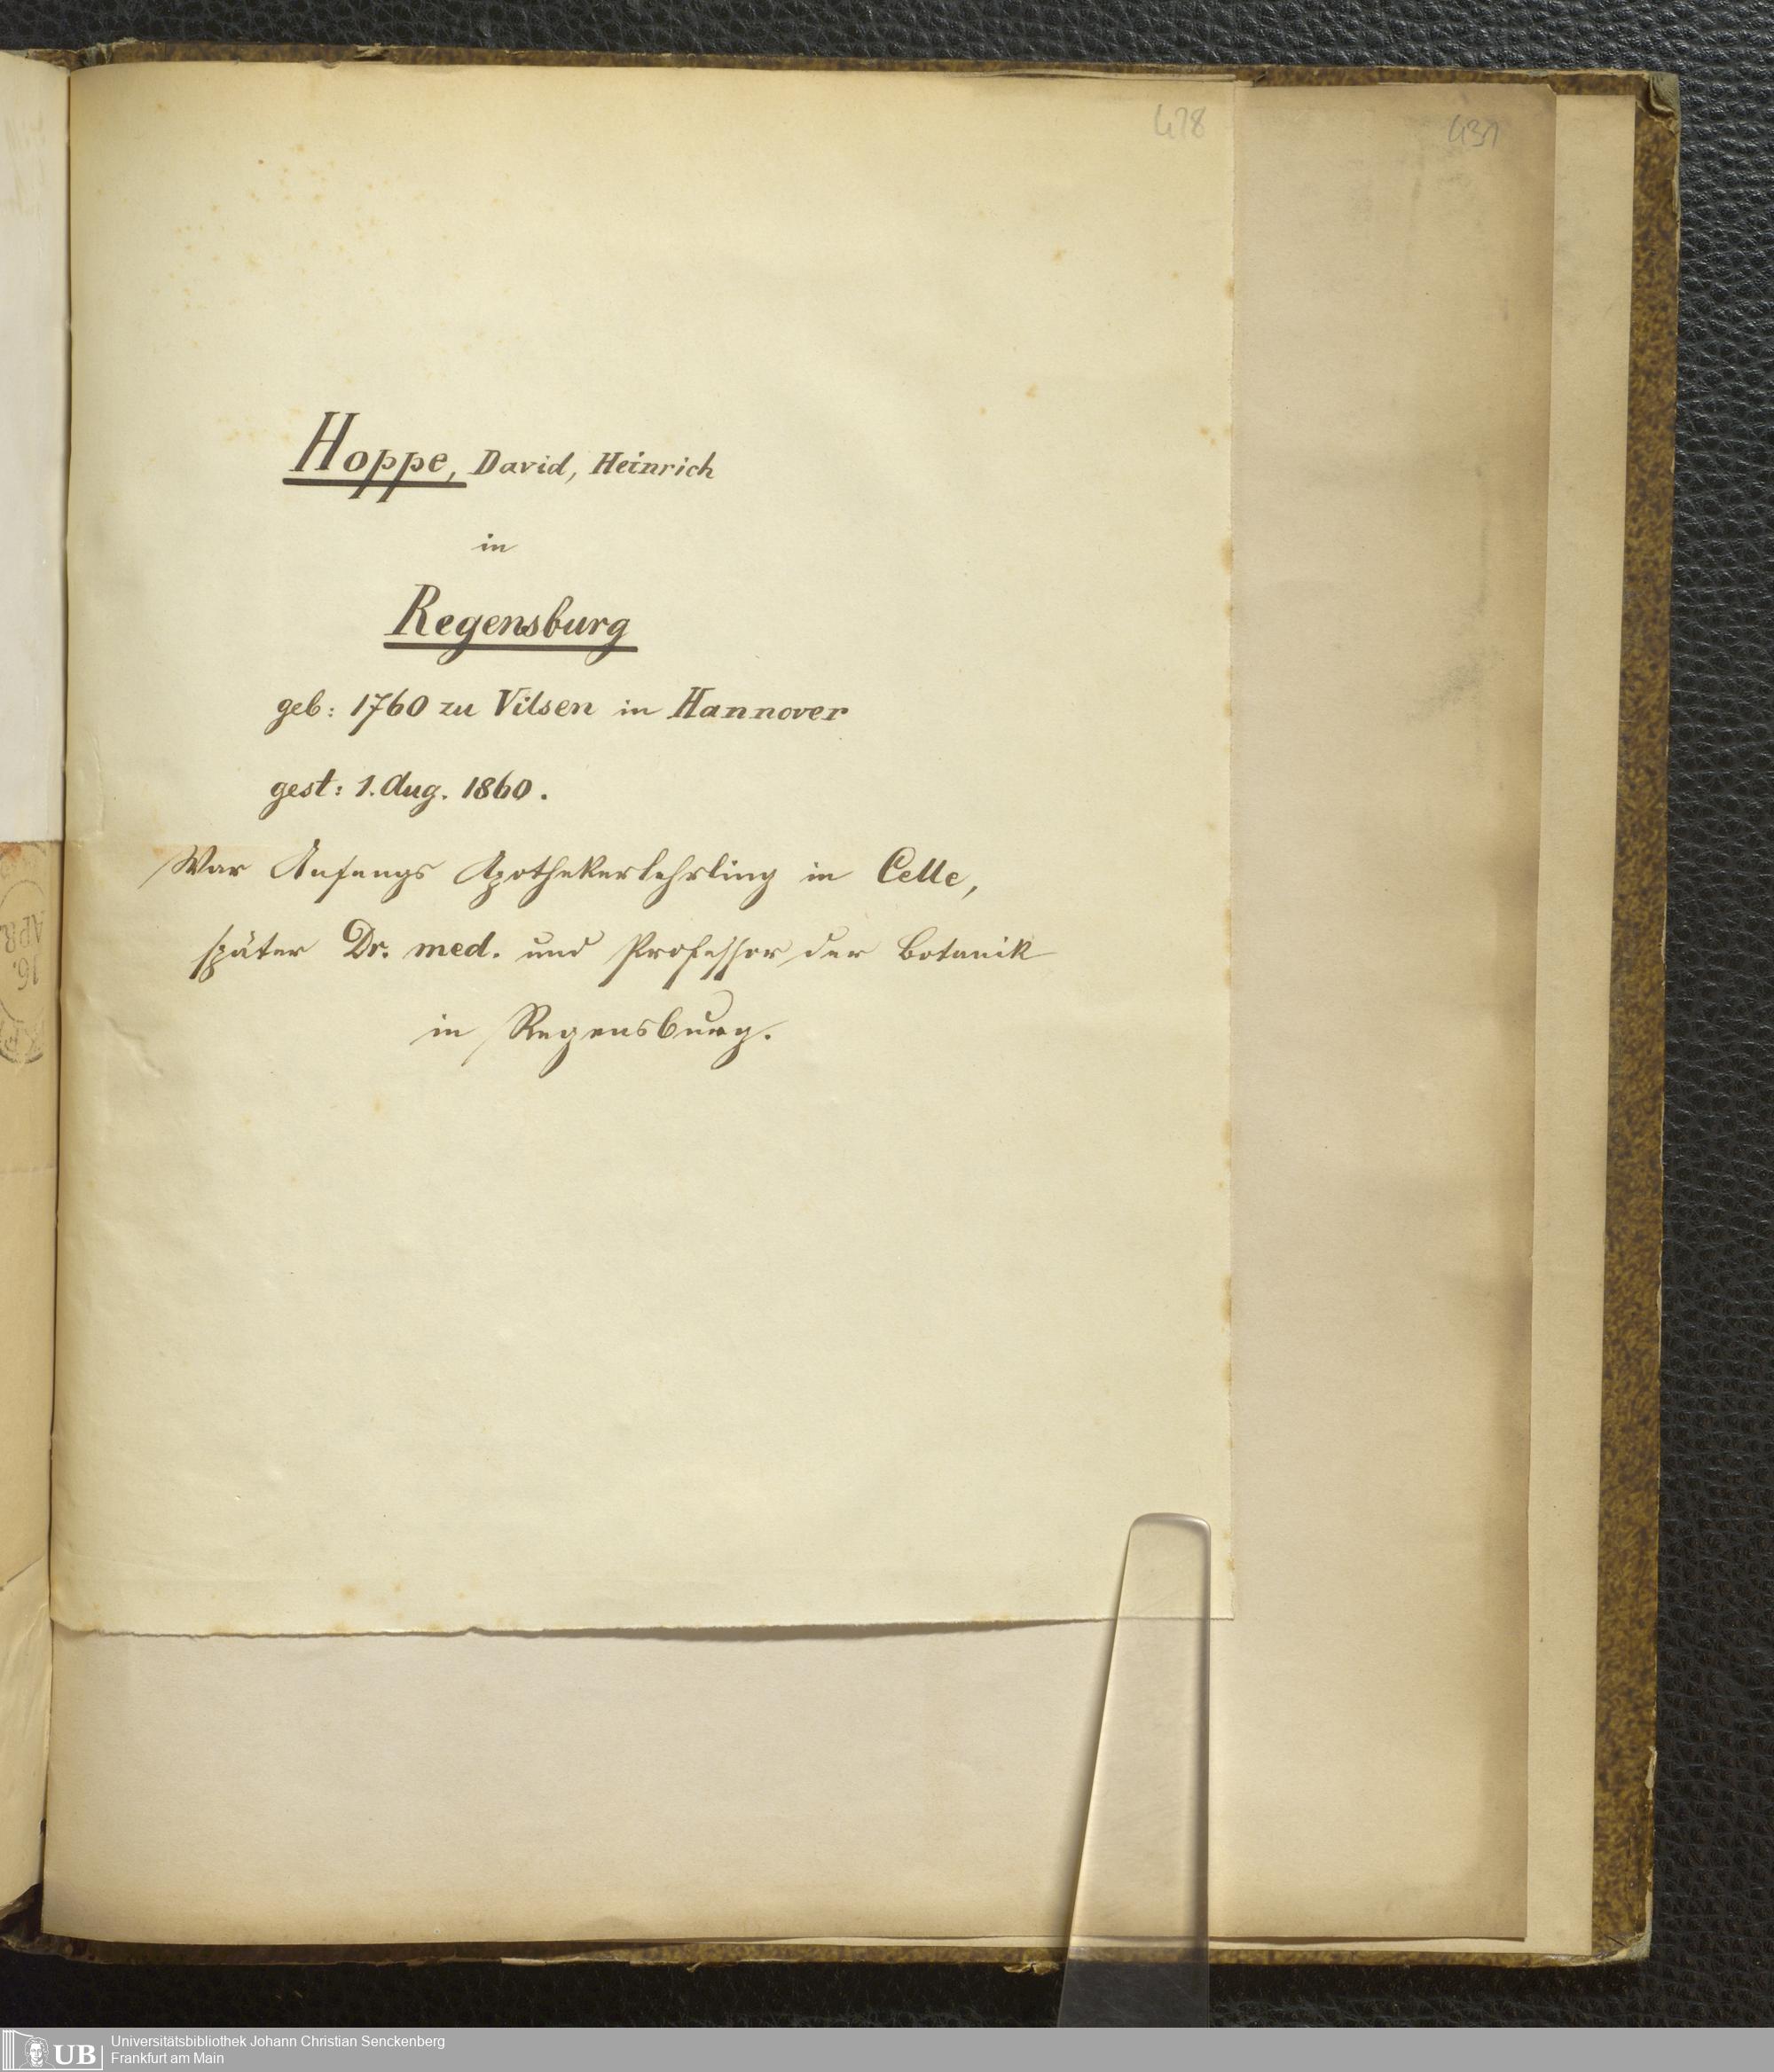 478
431
Hoppe, David, Heinrich
in
Regensburg
geb: 1760 zu Vilsen in Hannover
gest: 1. Aug. 1860.
War Anfangs Apothekerlehrling in Celle,
später Dr. med. und Professor der Botanik
in Regensburg.
APR.
16.
UB
Universitätsbibliothek Johann Christian Senckenberg
Frankfurt am Main